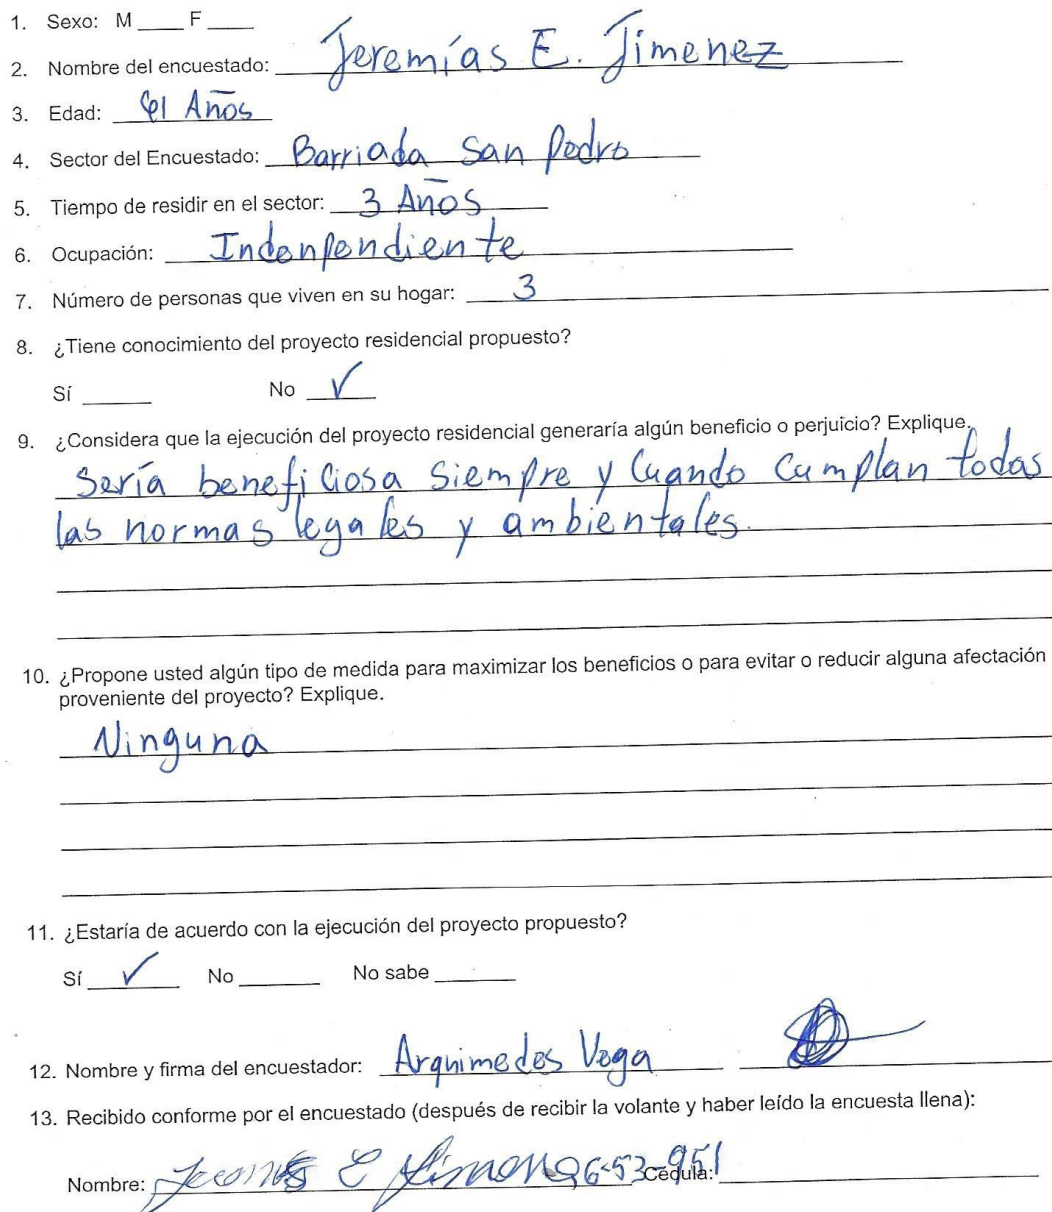 1. Sexo: M ____ F ____
2. Nombre del encuestado: Jeremías E. Jimenez
3. Edad: 61 Años
4. Sector del Encuestado: Barriada San Pedro
5. Tiempo de residir en el sector: 3 Años
6. Ocupación: Indenpendiente
7. Número de personas que viven en su hogar: 3
8. ¿Tiene conocimiento del proyecto residencial propuesto?
Sí ____ No ✓
9. ¿Considera que la ejecución del proyecto residencial generaría algún beneficio o perjuicio? Explique.
Sería beneficiosa siempre y cuando cumplan todas
las normas legales y ambientales.
10. ¿Propone usted algún tipo de medida para maximizar los beneficios o para evitar o reducir alguna afectación
proveniente del proyecto? Explique.
Ninguna
11. ¿Estaría de acuerdo con la ejecución del proyecto propuesto?
Sí ✓ No ____ No sabe ____
12. Nombre y firma del encuestador: Arquimedes Vega
13. Recibido conforme por el encuestado (después de recibir la volante y haber leído la encuesta llena):
Nombre: E 6-53-951 Cédula: